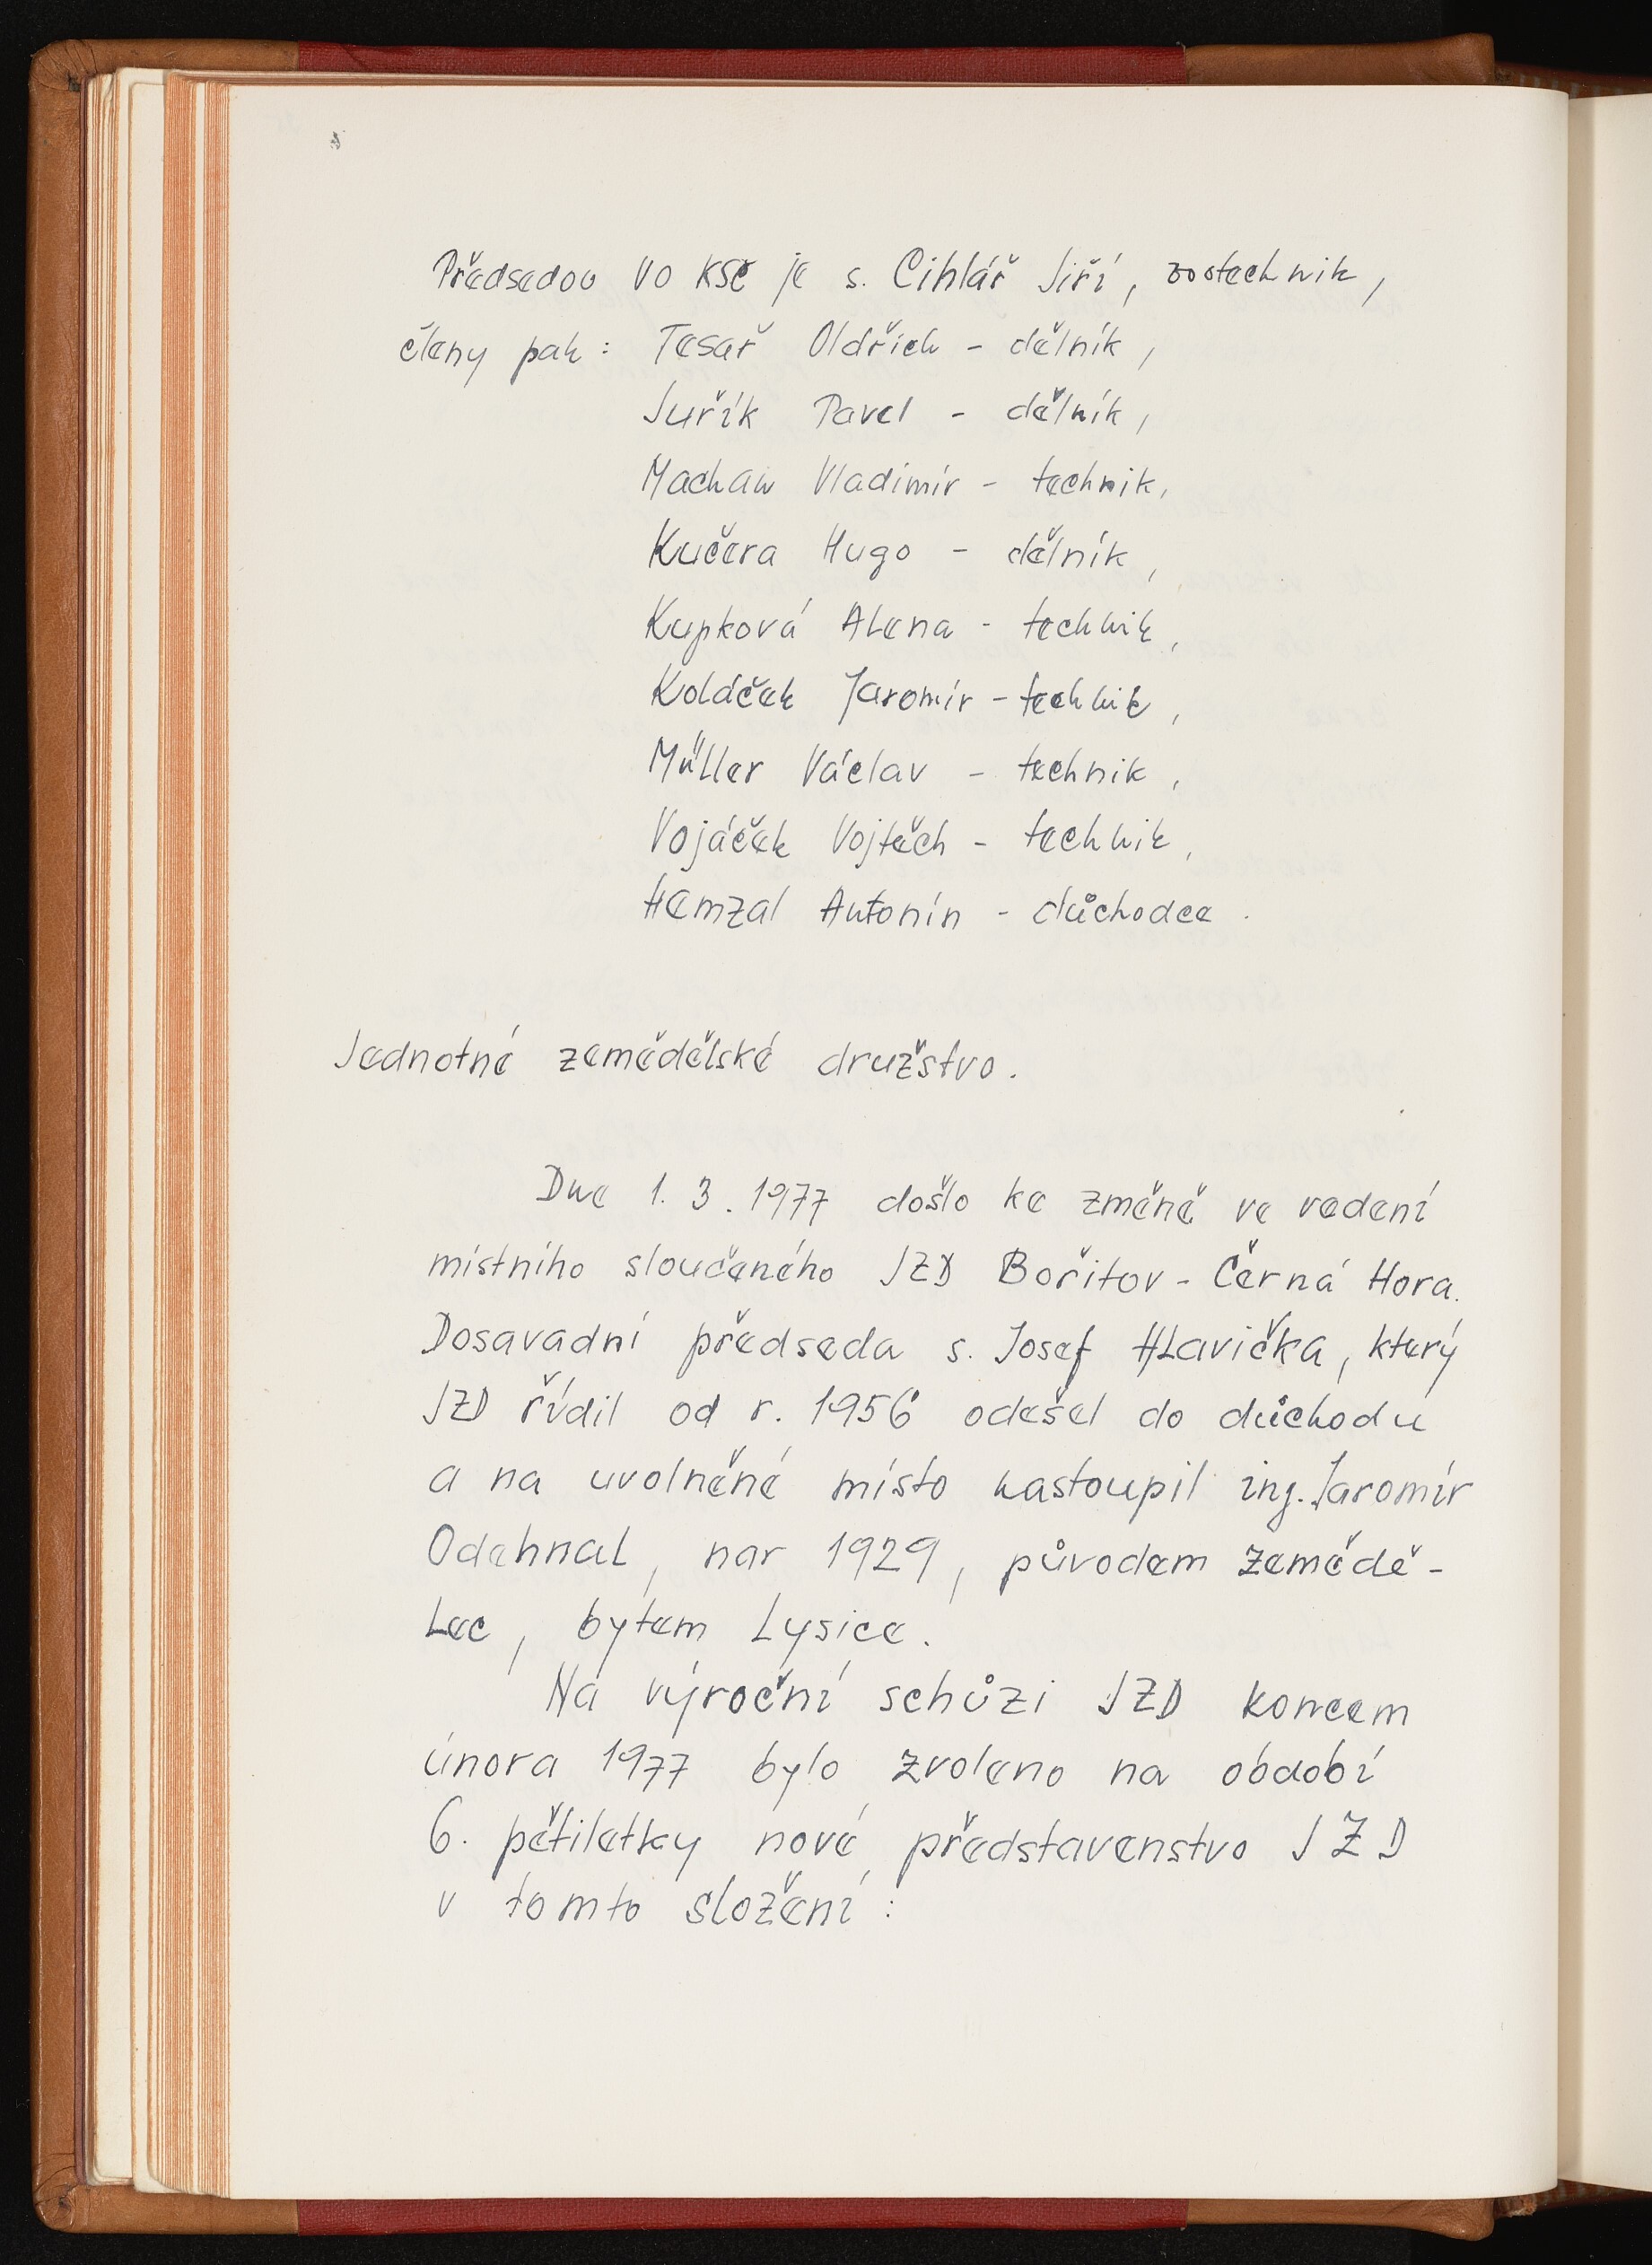 Předsedou VO KSČ je s. Cihlář Jiří, zootechnik,
členy pak: Tesař Oldřich - dělník,
Juřík Pavel - dělník,
Machaň Vladimír - technik,
Kučera Hugo - dělník,
Kupková Alena - technik,
Koláček Jaromír - technik,
Müller Václav - technik,
Vojáček Vojtěch - technik,
Hemzal Antonín - důchodce.
Jednotné zemědělské družstvo.
Dne 1. 3. 1977 došlo ke změně ve vedení
místního sloučeného JZD Bořitov - Černá Hora.
Dosavadní předseda s. Josef Hlavička, který
JZD řídil od r. 1956 odešel do důchodu
a na uvolněné místo nastoupil ing. Jaromír
Odehnal, nar 1929, původem zemědě-
lec, bytem Lysice.
Na výroční schůzi JZD koncem
února 1977 bylo zvoleno na období
6. pětiletky nové představenstvo JZD
v tomto složení: